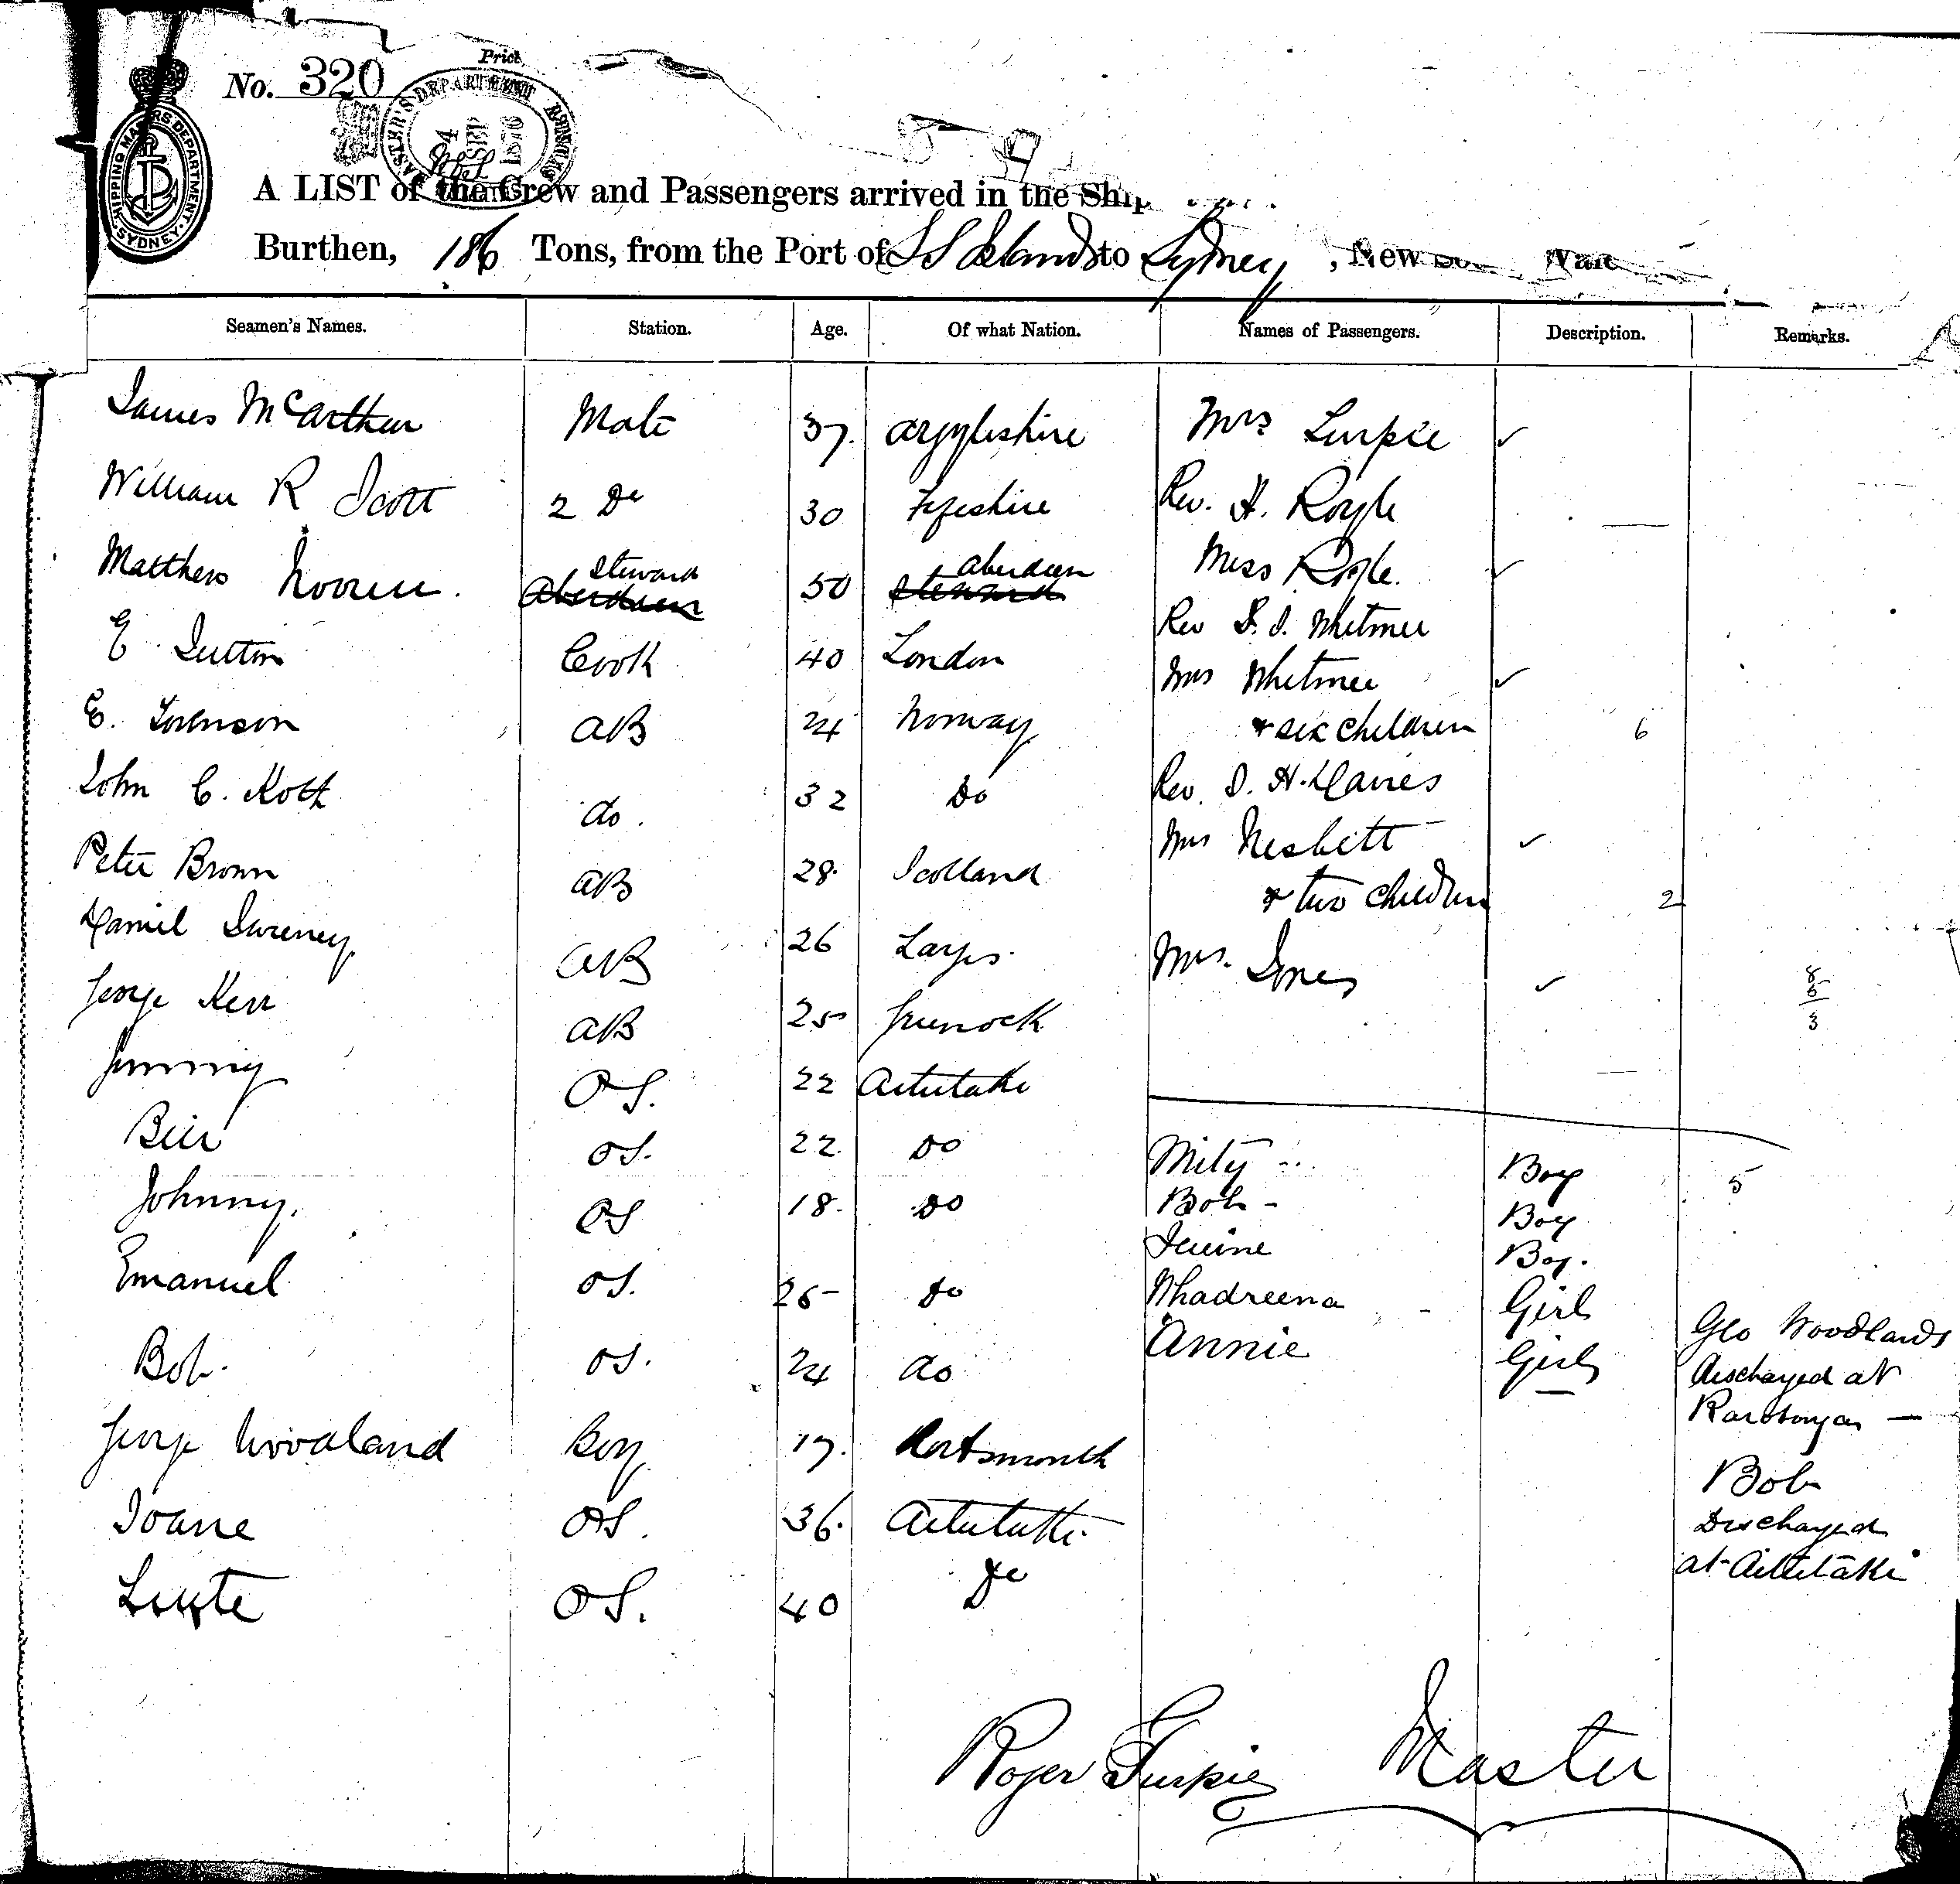 No. 320
Price
SHIPPING MASTERS DEPARTMENT
SYDNEY
24 SEP 1876
A LIST of the Crew and Passengers arrived in the Ship
Burthen, 186 Tons, from the Port of S S Islands to Sydney, New
Seamen's Names. Station. Age. Of what Nation. Names of Passengers. Description. Remarks.
James McArthur Mate 37. Argyleshire Mrs Turpie ✓
William R Scott 2 Do 30 Fifeshire Rev. H. Royle
Matthew steward 50 aberdeen Miss Royle. ✓
Aberdeen steward
Rev S. J. Whitmee
E Sutton Cook 40 London Mrs Whitmee ✓
E. Sorenson AB 24 Norway & six children 6
John C. Koth do. 32 Do Rev. S. H. Davies
Peter Brown AB 28. Scotland Mrs Nesbitt ✓
& two children 2
Daniel Sweeney AB 26 Largs. Mrs. Jones ✓
8
5
3
George Kerr AB 25 Greenock
Jimmy OS. 22 Aitutaki
Bill OS. 22. Do Mity Boy 5
Johnny. OS 18. Do Bob - Boy
Boy.
Emanuel OS. 26 - Do Girl
Bob. OS. 24 do Annie Girl
Geo Woodlands
discharged at
Rarotonga —
George Woodland Boy 17. Portsmouth
Bob
Joane OS. 36. Aitutaki
Discharged
at Aitutaki
OS. 40 Do
Roger Turpie Master